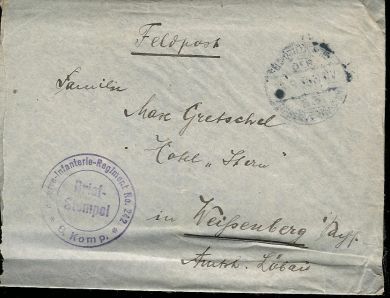 Feldpost
Familie
Max Gretschel
Hotel „Stern"
in Weißenberg
Amtsh. Löbau
Infanterie-Regiment No. 242
Brief-
Stempel
* 6. Komp. *